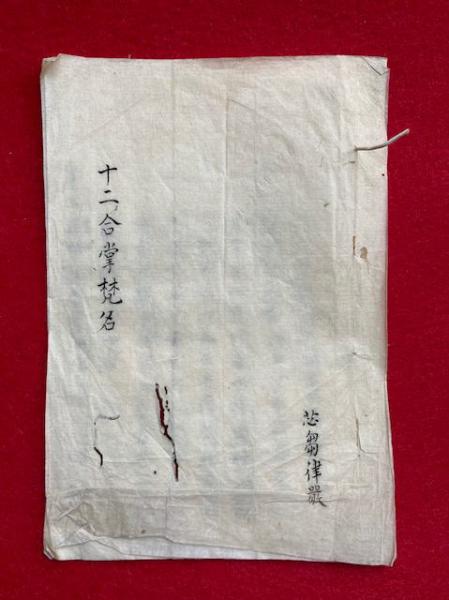 十二合掌梵名
苾芻律嚴